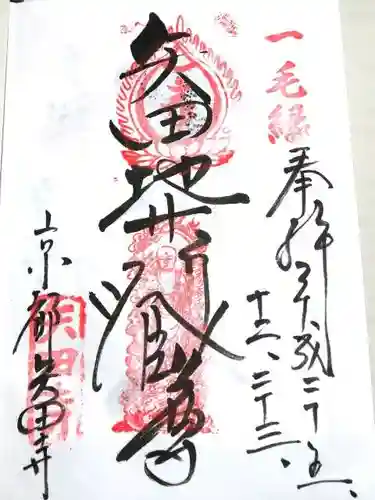 一毛縁
奉拝
平成二十五、
十二、二十三、
矢田地蔵尊
京都矢田寺